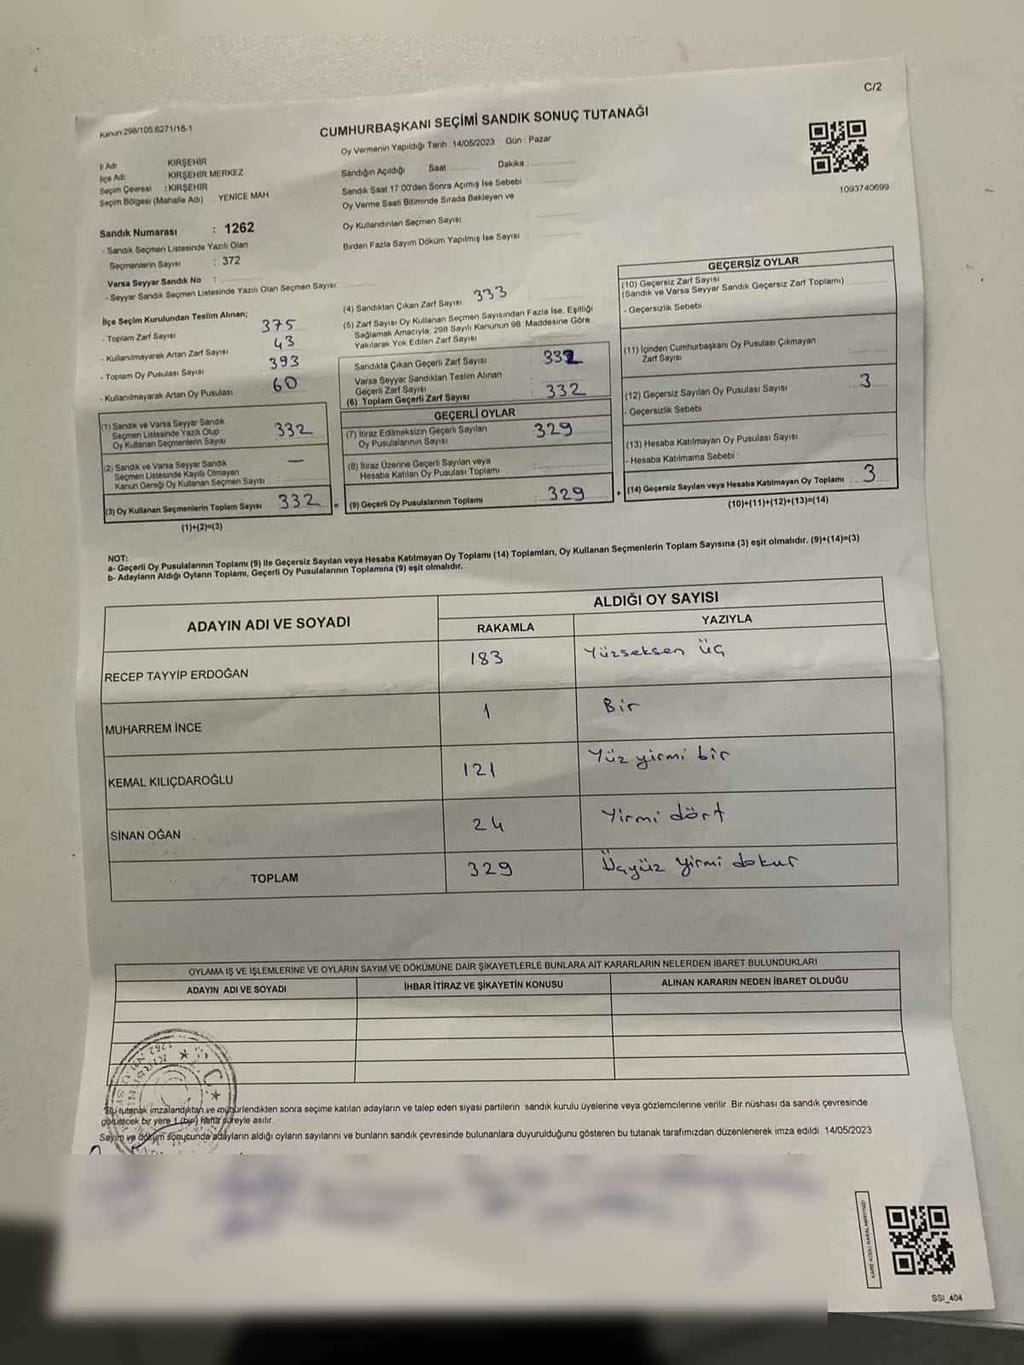 C/2
Kanun:298/105.6271/16-1
CUMHURBAŞKANI SEÇİMİ SANDIK SONUÇ TUTANAĞI
Oy Vermenin Yapıldığı Tarih :14/05/2023 Gün : Pazar
İl Adı KIRŞEHİR
İlçe Adı KIRŞEHİR MERKEZ
Seçim Çevresi : KIRŞEHİR
Seçim Bölgesi (Mahalle Adı) YENİCE MAH
Sandığın Açıldığı Saat Dakika
Sandık Saat 17.00'den Sonra Açımış İse Sebebi
Oy Verme Saati Bitiminde Sırada Bekleyen ve
Oy Kullandırılan Seçmen Sayısı
Birden Fazla Sayım Döküm Yapılmış İse Sayısı
1093740699
Sandık Numarası : 1262
- Sandık Seçmen Listesinde Yazılı Olan
Seçmenlerin Sayısı : 372
Varsa Seyyar Sandık No :
- Seyyar Sandık Seçmen Listesinde Yazılı Olan Seçmen Sayısı:
İlçe Seçim Kurulundan Teslim Alınan;
- Toplam Zarf Sayısı 375
- Kullanılmayarak Artan Zarf Sayısı 43
- Toplam Oy Pusulası Sayısı 393
- Kullanılmayarak Artan Oy Pusulası 60
(1) Sandık ve Varsa Seyyar Sandık
Seçmen Listesinde Yazılı Olup
Oy Kullanan Seçmenlerin Sayısı 332
(2) Sandık ve Varsa Seyyar Sandık
Seçmen Listesinde Kayıtlı Olmayan
Kanun Gereği Oy Kullanan Seçmen Sayısı —
(3) Oy Kullanan Seçmenlerin Toplam Sayısı 332 =
(1)+(2)=(3)
(4) Sandıktan Çıkan Zarf Sayısı 333
(5) Zarf Sayısı Oy Kullanan Seçmen Sayısından Fazla İse, Eşitliği
Sağlamak Amacıyla; 298 Sayılı Kanunun 98. Maddesine Göre
Yakılarak Yok Edilen Zarf Sayısı
Sandıkta Çıkan Geçerli Zarf Sayısı 332
Varsa Seyyar Sandıktan Teslim Alınan
Geçerli Zarf Sayısı
(6) Toplam Geçerli Zarf Sayısı 332
GEÇERLİ OYLAR
(7) İtiraz Edilmeksizin Geçerli Sayılan
Oy Pusulalarının Sayısı 329
(8) İtiraz Üzerine Geçerli Sayılan veya
Hesaba Katılan Oy Pusulası Toplamı
(9) Geçerli Oy Pusulalarının Toplamı 329 +
GEÇERSİZ OYLAR
(10) Geçersiz Zarf Sayısı
(Sandık ve Varsa Seyyar Sandık Geçersiz Zarf Toplamı)
- Geçersizlik Sebebi
(11) İçinden Cumhurbaşkanı Oy Pusulası Çıkmayan
Zarf Sayısı
(12) Geçersiz Sayılan Oy Pusulası Sayısı 3
- Geçersizlik Sebebi :
(13) Hesaba Katılmayan Oy Pusulası Sayısı
- Hesaba Katılmama Sebebi :
(14) Geçersiz Sayılan veya Hesaba Katılmayan Oy Toplamı 3
(10)+(11)+(12)+(13)=(14)
NOT:
a- Geçerli Oy Pusulalarının Toplamı (9) ile Geçersiz Sayılan veya Hesaba Katılmayan Oy Toplamı (14) Toplamları, Oy Kullanan Seçmenlerin Toplam Sayısına (3) eşit olmalıdır. (9)+(14)=(3)
b- Adayların Aldığı Oyların Toplamı, Geçerli Oy Pusulalarının Toplamına (9) eşit olmalıdır.
ADAYIN ADI VE SOYADI ALDIĞI OY SAYISI
RAKAMLA YAZIYLA
RECEP TAYYİP ERDOĞAN 183 Yüzseksen üç
MUHARREM İNCE 1 Bir
KEMAL KILIÇDAROĞLU 121 Yüz yirmi bir
SİNAN OĞAN 24 Yirmi dört
TOPLAM 329 Üçyüz yirmi dokuz
OYLAMA İŞ VE İŞLEMLERİNE VE OYLARIN SAYIM VE DÖKÜMÜNE DAİR ŞİKAYETLERLE BUNLARA AİT KARARLARIN NELERDEN İBARET BULUNDUKLARI
ADAYIN ADI VE SOYADI İHBAR İTİRAZ VE ŞİKAYETİN KONUSU ALINAN KARARIN NEDEN İBARET OLDUĞU
Bu tutanak imzalandıktan ve mühürlendikten sonra seçime katılan adayların ve talep eden siyasi partilerin sandık kurulu üyelerine veya gözlemcilerine verilir. Bir nüshası da sandık çevresinde
görülecek bir yere 1 (bir) hafta süreyle asılır.
Sayım ve döküm sonucunda adayların aldığı oyların sayılarını ve bunların sandık çevresinde bulunanlara duyurulduğunu gösteren bu tutanak tarafımızdan düzenlenerek imza edildi. 14/05/2023
SSI_404